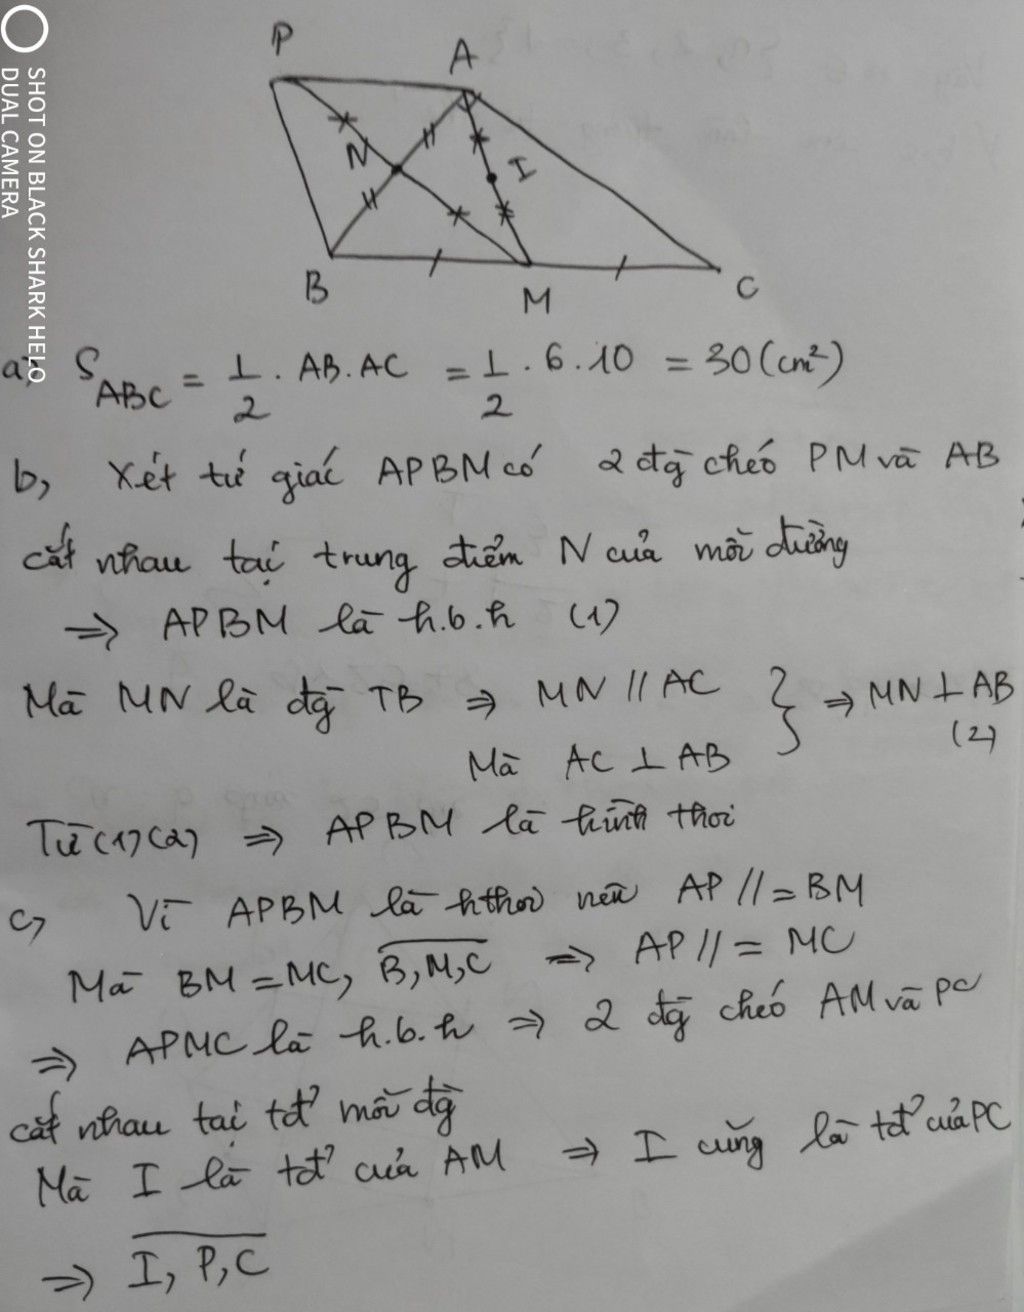 SHOT ON BLACK SHARK HELO
DUAL CAMERA
P
A
N
I
B
M
C
a, S_ABC = 1/2 . AB.AC = 1/2 . 6.10 = 30 (cm²)
b, Xét tứ giác APBM có 2 đg chéo PM và AB
cắt nhau tại trung điểm N của mỗi đường
=> APBM là h.b.h (1)
Mà MN là đg TB => MN // AC } => MN ⊥ AB
Mà AC ⊥ AB (2)
Từ (1) (2) => APBM là hình thoi
c, Vì APBM là hthoi nên AP //= BM
Mà BM = MC, B,M,C => AP //= MC
=> APMC là h.b.h => 2 đg chéo AM và PC
cắt nhau tại tđ' mỗi đg
Mà I là tđ' của AM => I cũng là tđ' của PC
=> I, P, C